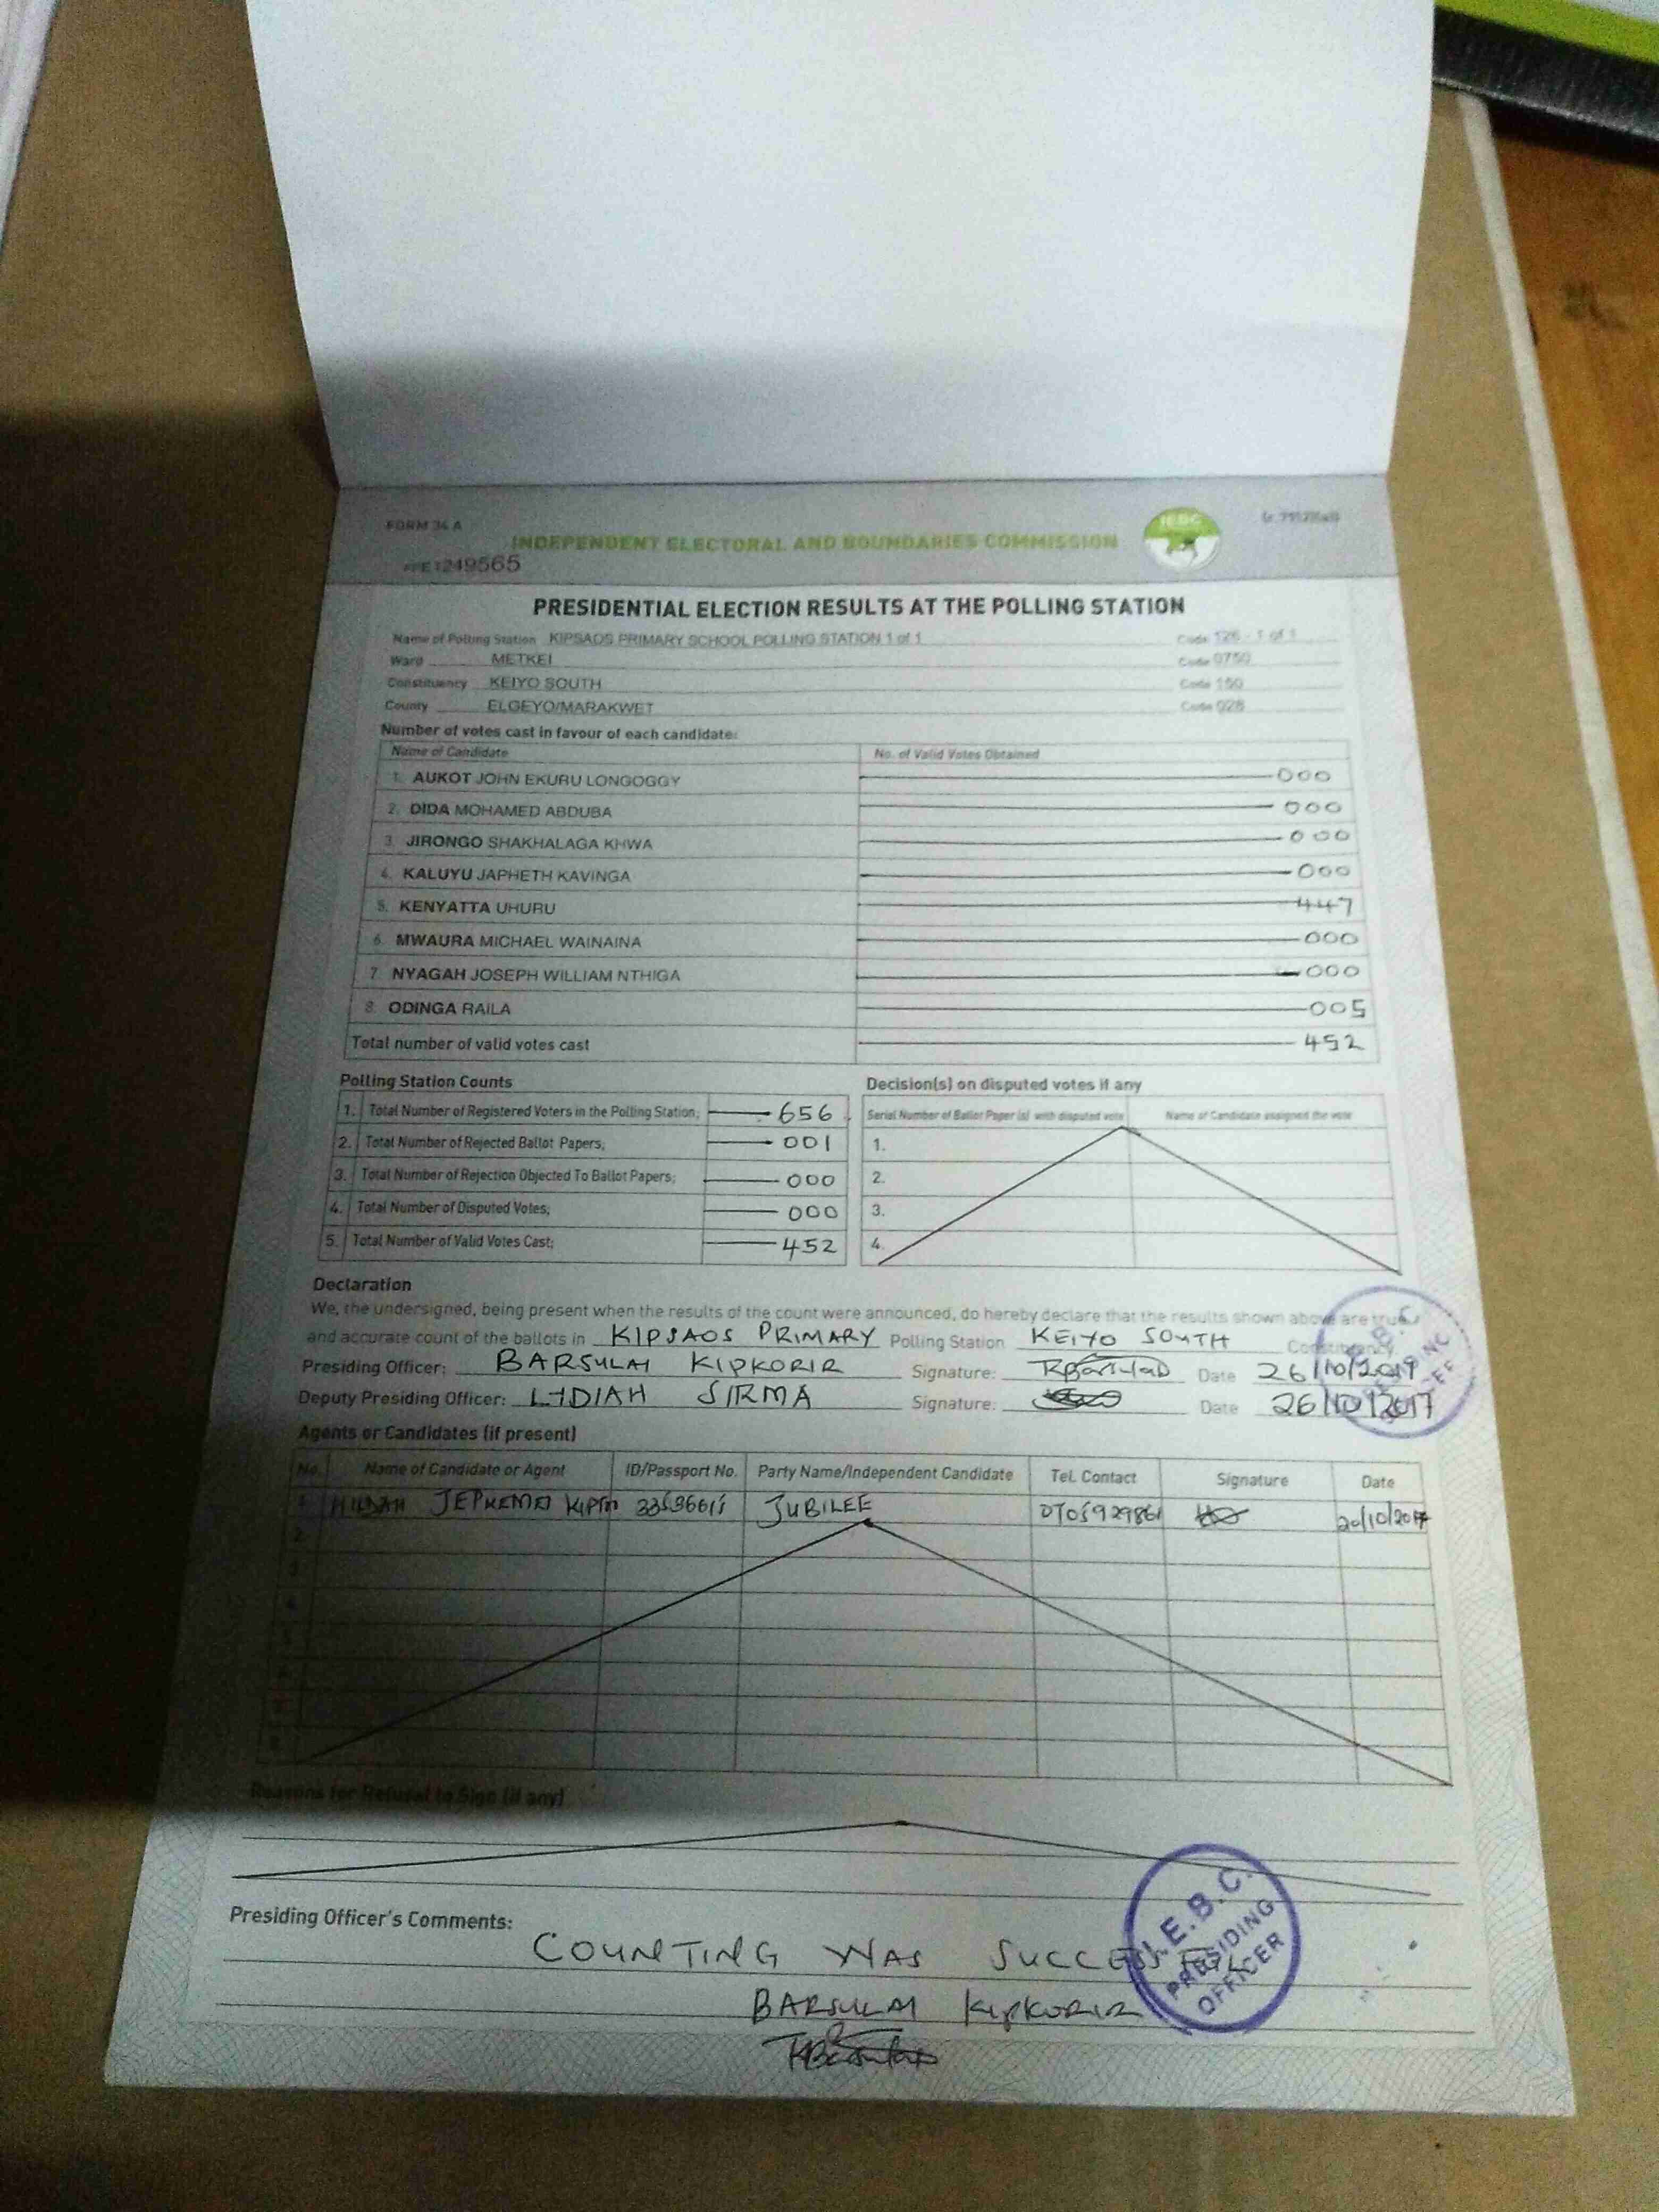 FORM 34 A
INDEPENDENT ELECTORAL AND BOUNDARIES COMMISSION
IEBC
1249565
PRESIDENTIAL ELECTION RESULTS AT THE POLLING STATION
Name of Polling Station KIPSAOS PRIMARY SCHOOL POLLING STATION 1 of 1 Code 126 - 1 of 1
Ward METKEI Code 0750
Constituency KEIYO SOUTH Code 150
County ELGEYO/MARAKWET Code 028
Number of votes cast in favour of each candidate:
Name of Candidate No. of Valid Votes Obtained
1. AUKOT JOHN EKURU LONGOGGY 000
2. DIDA MOHAMED ABDUBA 000
3. JIRONGO SHAKHALAGA KHWA 000
4. KALUYU JAPHETH KAVINGA 000
5. KENYATTA UHURU 447
6. MWAURA MICHAEL WAINAINA 000
7. NYAGAH JOSEPH WILLIAM NTHIGA 000
8. ODINGA RAILA 005
Total number of valid votes cast 452
Polling Station Counts
1. Total Number of Registered Voters in the Polling Station; 656
2. Total Number of Rejected Ballot Papers; 001
3. Total Number of Rejection Objected To Ballot Papers; 000
4. Total Number of Disputed Votes; 000
5. Total Number of Valid Votes Cast; 452
Decision(s) on disputed votes if any
Serial Number of Ballot Paper (s) with disputed vote Name of Candidate assigned the vote
1.
2.
3.
4.
Declaration
We, the undersigned, being present when the results of the count were announced, do hereby declare that the results shown above are true
and accurate count of the ballots in KIPSAOS PRIMARY Polling Station KEIYO SOUTH Constituency.
Presiding Officer: BARSULAI KIPKORIR Signature: Date 26/10/2017
Deputy Presiding Officer: LYDIAH SIRMA Signature: Date 26/10/2017
Agents or Candidates (if present)
No. Name of Candidate or Agent ID/Passport No. Party Name/Independent Candidate Tel. Contact Signature Date
1 JUBILEE
2
3
4
5
6
7
8
Reasons for Refusal to Sign (if any)
Presiding Officer's Comments:
COUNTING WAS SUCCESSFUL
BARSULAI KIPKORIR
I.E.B.C.
PRESIDING
OFFICER